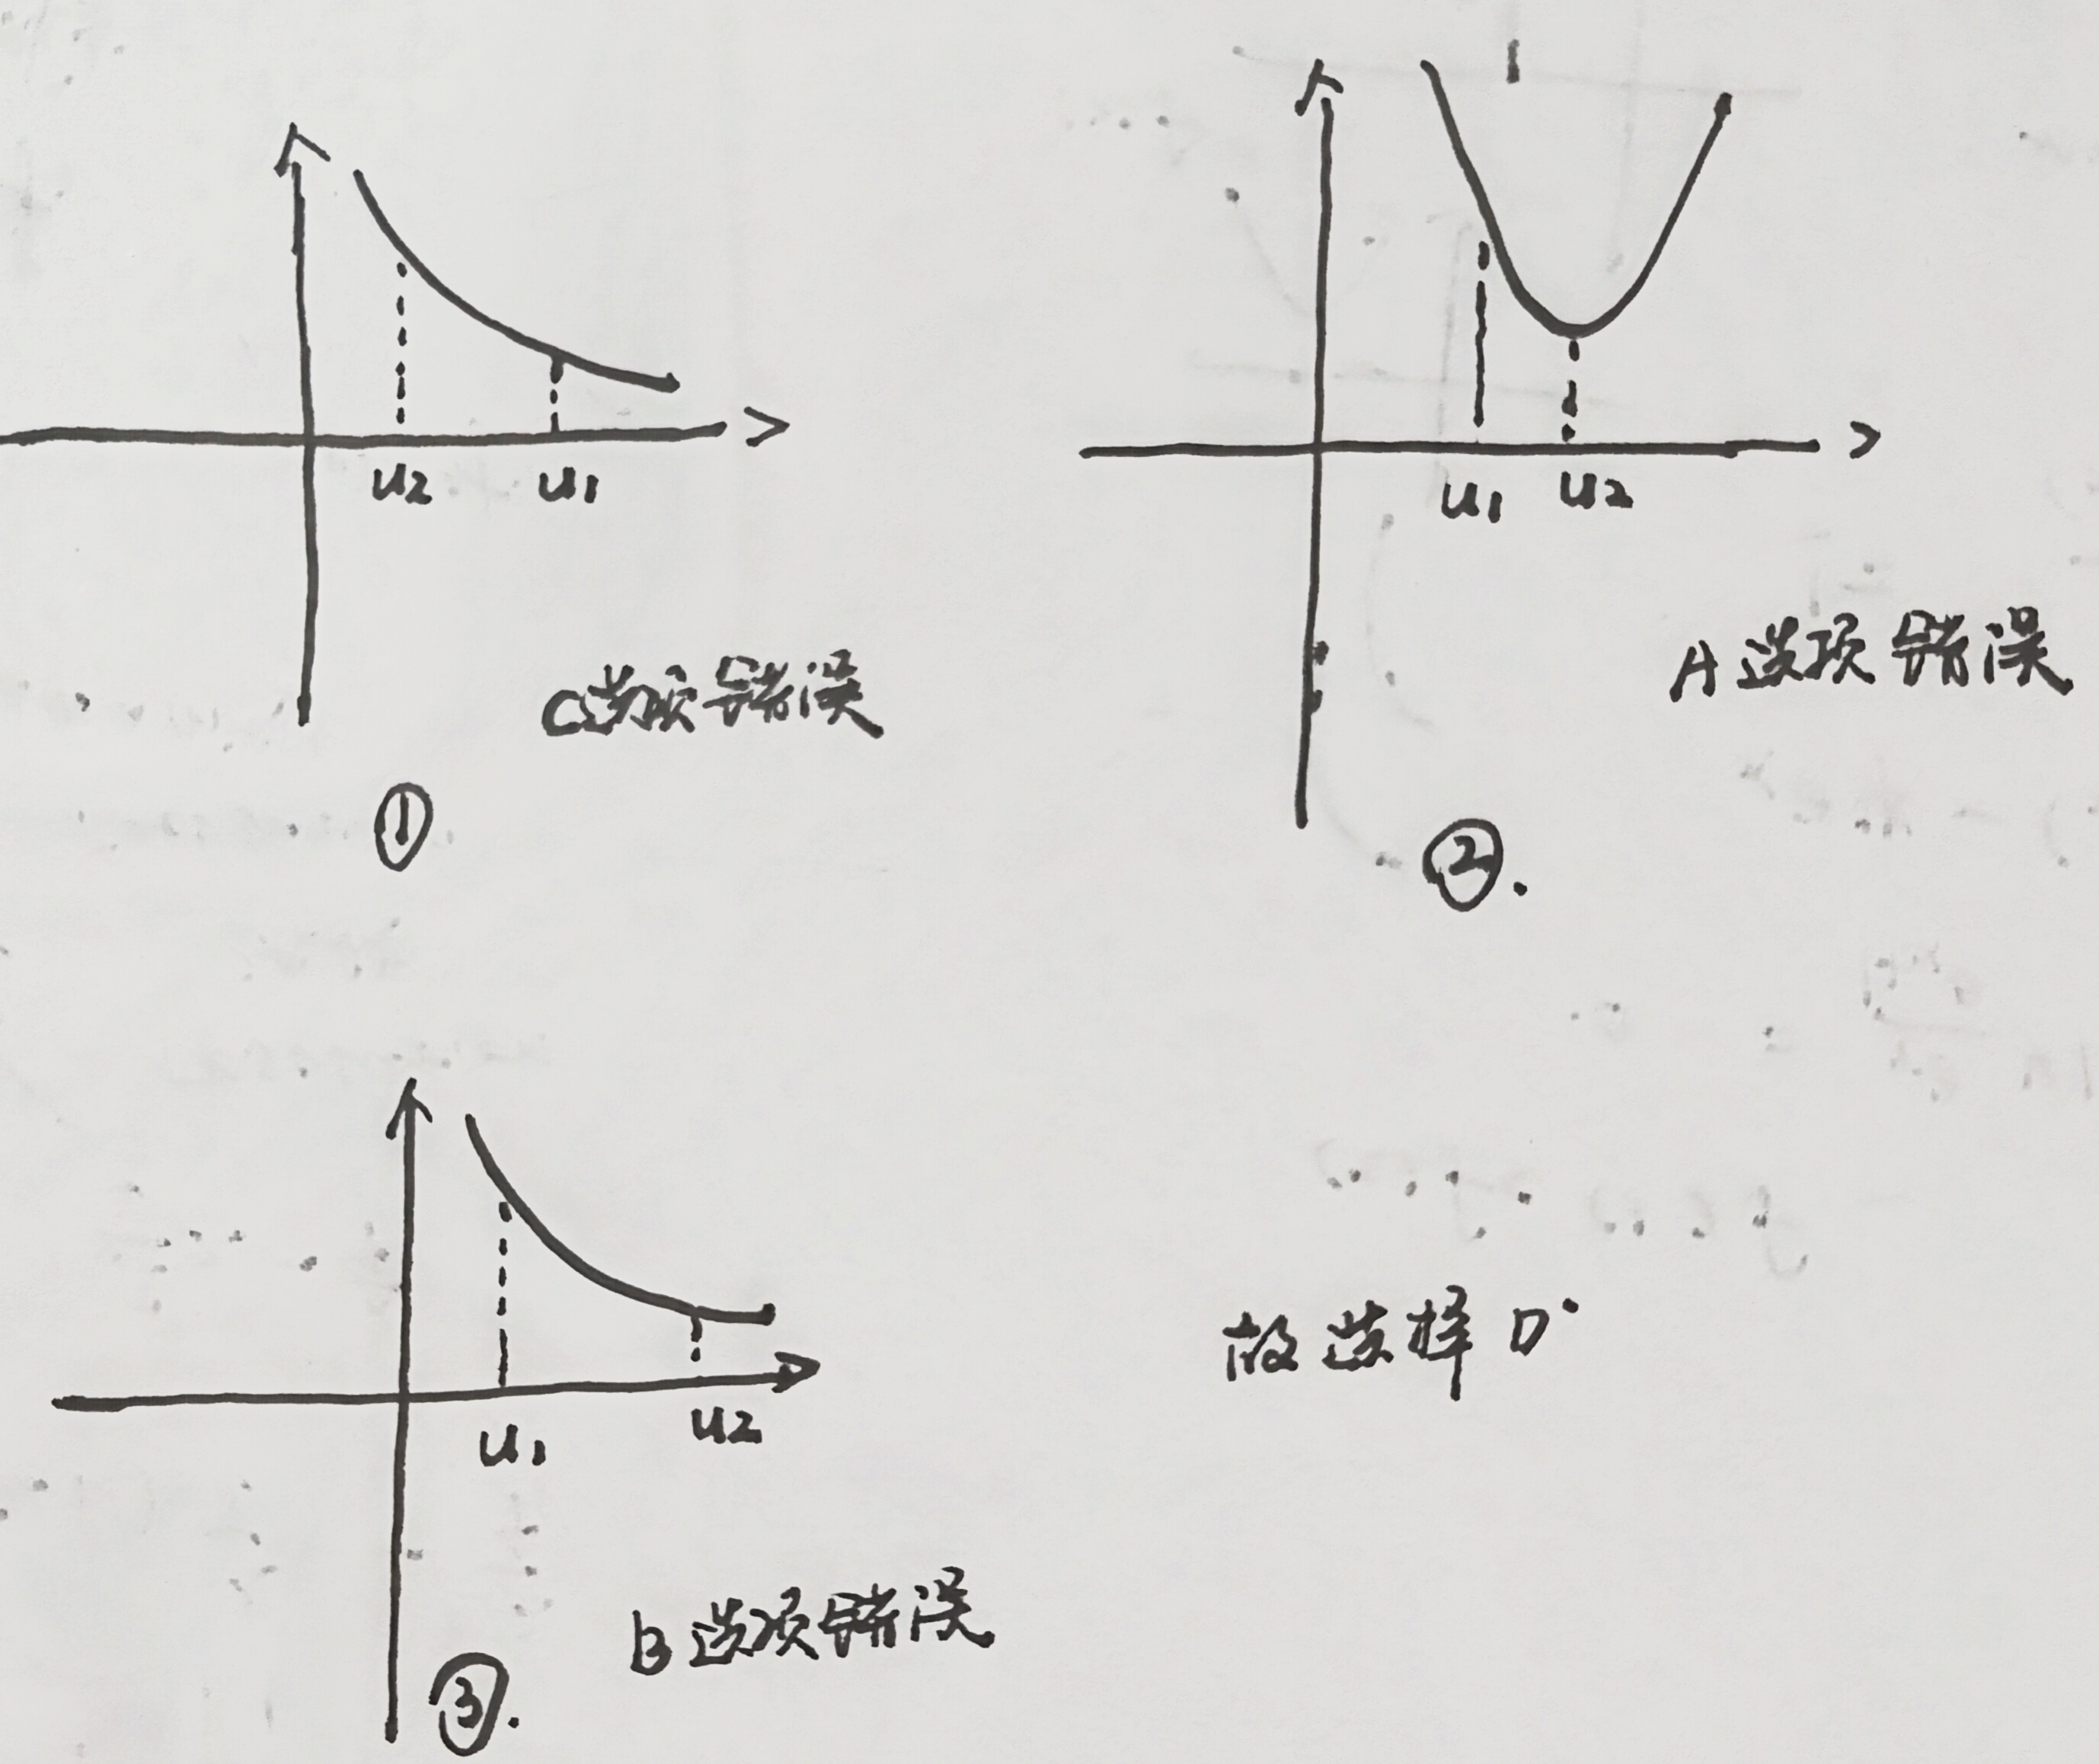 u2 u1
C选项错误
①
u1 u2
A选项错误
②.
u1 u2
B选项错误
③.
故选择D.